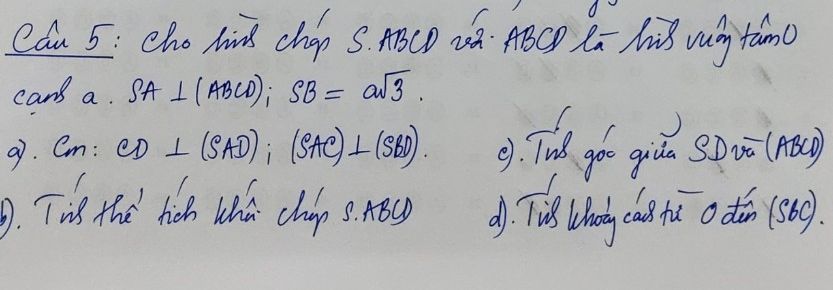 Câu 5: Cho hình chóp S.ABCD với ABCD là hình vuông tâm O
cạnh a. SA ⊥ (ABCD); SB = a√3.
a). Cm: CD ⊥ (SAD); (SAC) ⊥ (SBD).
b). Tính thể tích khối chóp S.ABCD
c). Tính góc giữa SD và (ABCD)
d). Tính khoảng cách từ O đến (SBC).